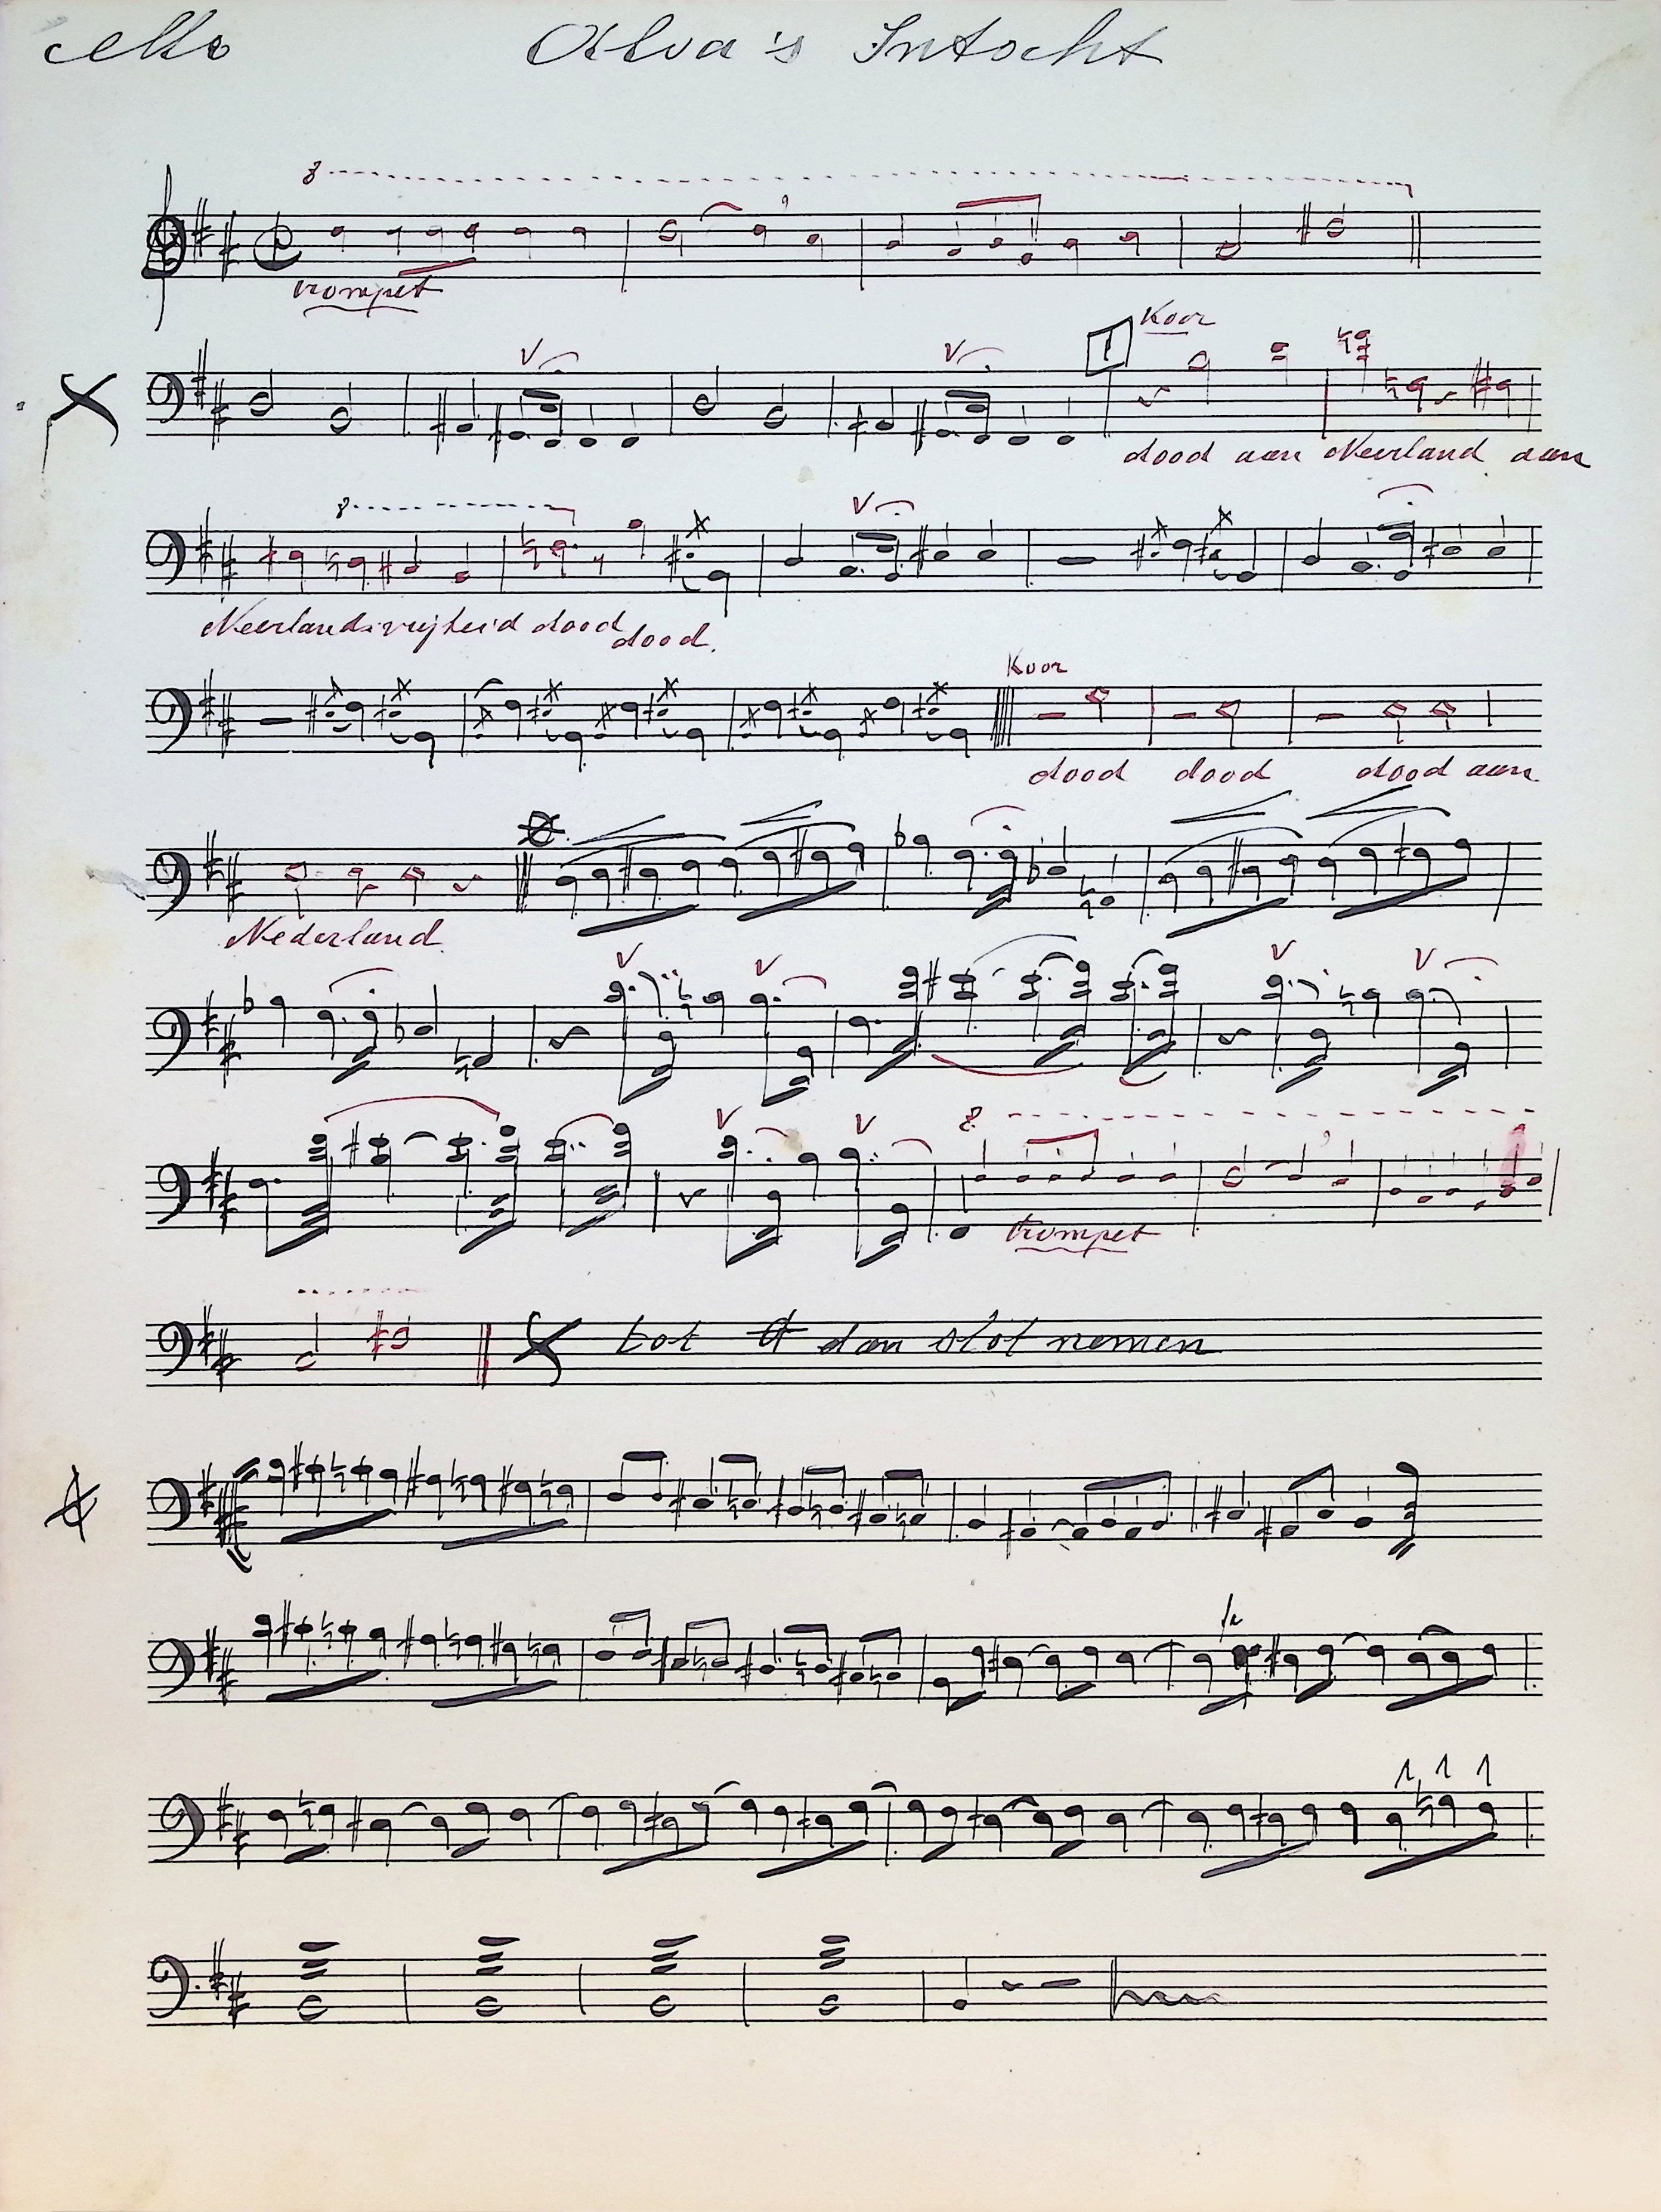 cello Alva's Intocht
8
trompet
1 Koor
dood aan Neerland aan
8
Neerlands vrijheid dood dood.
Koor
dood dood dood aan
Nederland
8
trompet
tot dan slot nemen
1 1 1